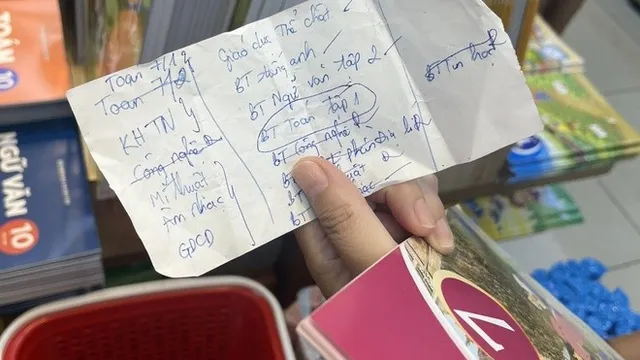 TOÁN
10
NGỮ VĂN
10
Toán 7/1
Toán 7/2
KHTN
Công nghệ
Mĩ thuật
Âm nhạc
GDCD
Giáo dục thể chất
BT tiếng anh
BT Ngữ văn tập 2
BT Toán tập 1
BT Công nghệ
BT
BT
BT
BT Tin học
V